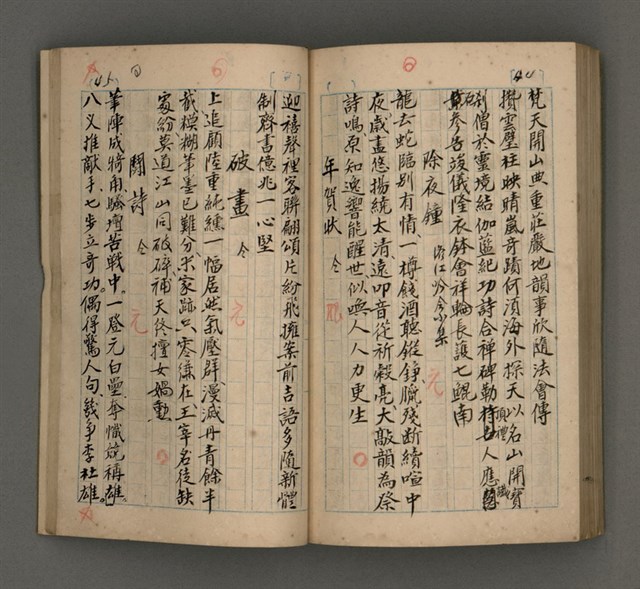 梵天開山典重莊嚴地韻事欣隨法會傳
攢雲壁柱映晴嵐奇蹟何須海外探天以名山開寶
剎僧於靈境結伽藍紀功詩合禪碑勒人應
參告後儀隆衣鉢會祥輪長護七鯤南
除夜鐘
龍去蛇臨別有情一樽餞酒聽鏦錚臘殘断續喧中
夜歲盡悠揚繞太清遠叩音從祈穀亮大敲韻為祭
詩鳴原知逸響能醒世似喚人人力更生
年賀状 仝
迎禧聲裡客聯翩頌片紛飛擁案前吉語多隨新體
制齊書億兆一心堅
破畫 仝
上追顧陸重純纁一幅居然氣壓群漫滅丹青餘半
截模糊筆墨已難分米家跡只零縑在王宰名徒缺
處紛莫道江山同破碎補天終擅女媧勳
鬪詩 仝
筆陣成犄角騷壇苦戰中。一登元白壘奪幟競稱雄。
八义推敵手七步立奇功。偶得驚人句幾爭李杜雄。